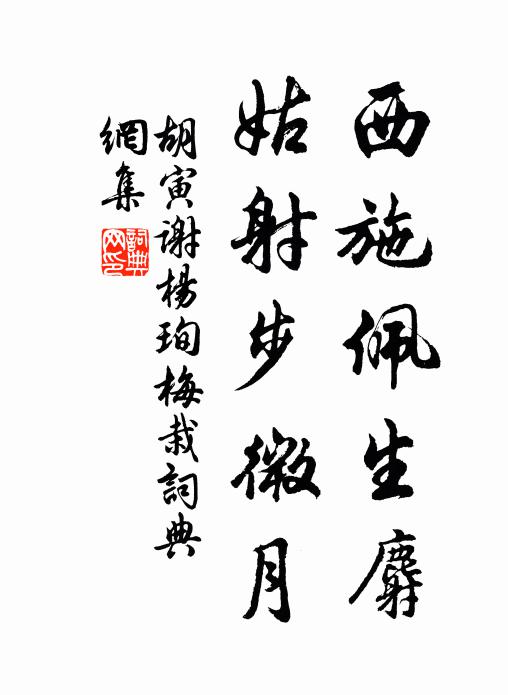 西施佩生麝
姑射步微月
胡寅謝楊珣梅栽詞典
網集
詞典
网印